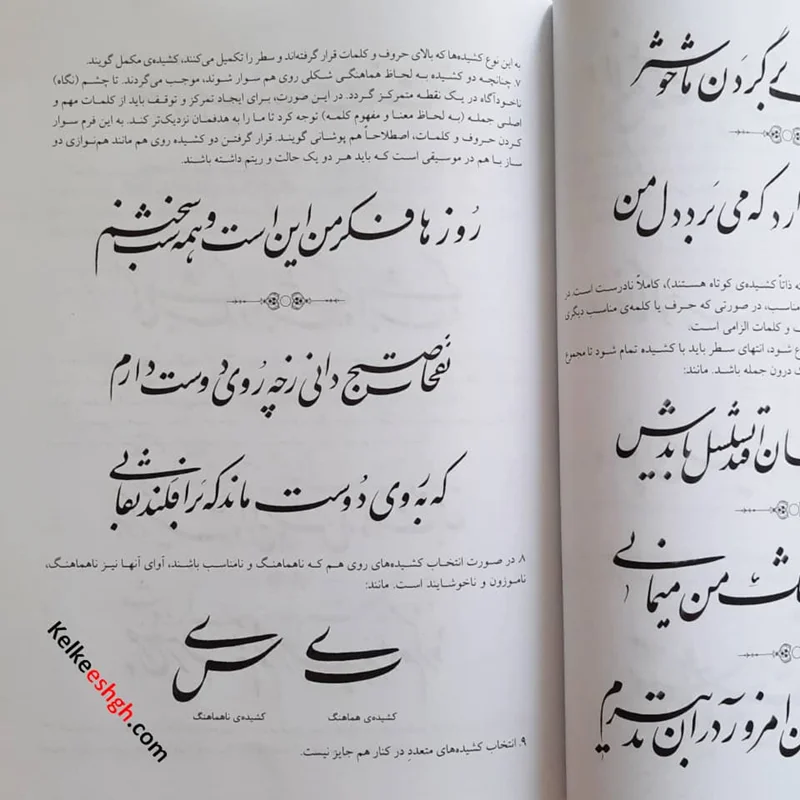 به این نوع کشیده‌ها که بالای حروف و کلمات قرار گرفته‌اند و سطر را تکمیل می‌کنند، کشیده‌ی مکمل گویند.
۷. چنانچه دو کشیده به لحاظ هماهنگی شکلی روی هم سوار شوند، موجب می‌گردند. تا چشم (نگاه)
ناخودآگاه در یک نقطه متمرکز گردد. در این صورت، برای ایجاد تمرکز و توقف باید از کلمات مهم و
اصلی جمله (به لحاظ معنا و مفهوم کلمه) توجه کرد تا ما را به هدفمان نزدیک‌تر کند. به این فرم سوار
کردن حروف و کلمات، اصطلاحاً هم پوشانی گویند. قرار گرفتن دو کشیده روی هم مانند هم‌نوازی دو
ساز با هم در موسیقی است که باید هر دو یک حالت و ریتم داشته باشند.
روزها فکر من این است و همه شب سخنم
نفحات صبح دانی ز چه روی دوست دارم
که به روی دوست ماند که برافکند نقابی
۸. در صورت انتخاب کشیده‌های روی هم که ناهماهنگ و نامناسب باشند، آوای آنها نیز ناهماهنگ،
ناموزون و ناخوشایند است. مانند:
کشیده‌ی هماهنگ
کشیده‌ی ناهماهنگ
۹. انتخاب کشیده‌های متعدد در کنار هم جایز نیست.
Kelkeeshgh.com
گردن ما خوشتر
که می برد دل من
ذاتاً کشیده‌ی کوتاه هستند)، کاملاً نادرست است. در
مناسب، در صورتی که حرف یا کلمه‌ی مناسب دیگری
و کلمات الزامی است.
شود، انتهای سطر باید با کشیده تمام شود تا مجموع
درون جمله باشد. مانند:
من میمانی
امروز در آن